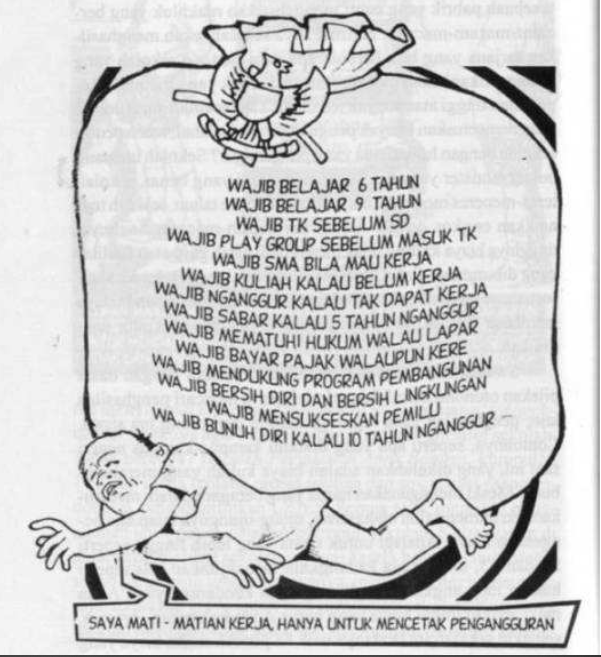 WAJIB BELAJAR 6 TAHUN
WAJIB BELAJAR 9 TAHUN
WAJIB TK SEBELUM SD
WAJIB PLAY GROUP SEBELUM MASUK TK
WAJIB SMA BILA MAU KERJA
WAJIB KULIAH KALAU BELUM KERJA
WAJIB NGANGGUR KALAU TAK DAPAT KERJA
WAJIB SABAR KALAU 5 TAHUN NGANGGUR
WAJIB MEMATUHI HUKUM WALAU LAPAR
WAJIB BAYAR PAJAK WALAUPUN KERE
WAJIB MENDUKUNG PROGRAM PEMBANGUNAN
WAJIB BERSIH DIRI DAN BERSIH LINGKUNGAN
WAJIB MENSUKSESKAN PEMILU
WAJIB BUNUH DIRI KALAU 10 TAHUN NGANGGUR
SAYA MATI - MATIAN KERJA, HANYA UNTUK MENCETAK PENGANGGURAN